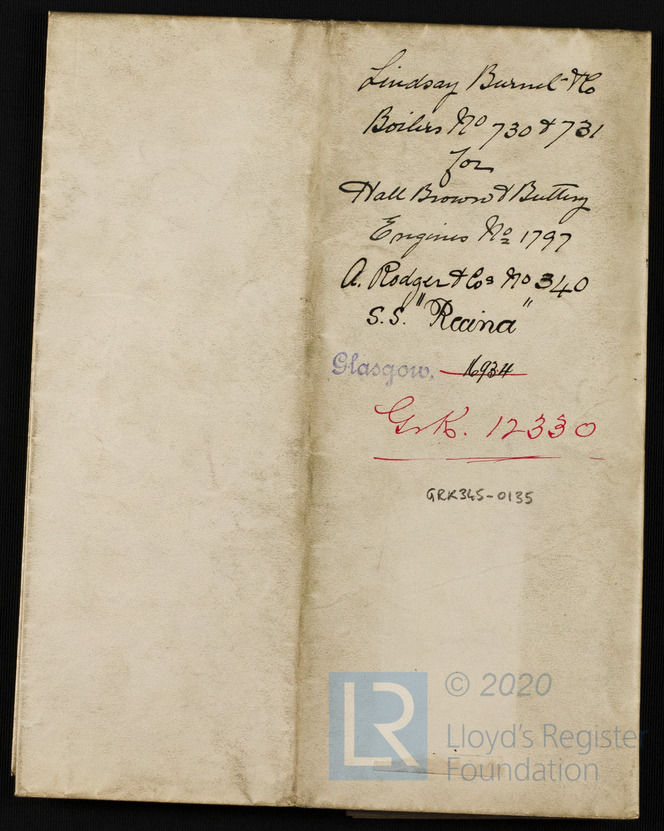 Lindsay Burnet & Co
Boilers No 730 & 731
for
Hall Brown & Buttery
Engines No 1797
A. Rodger & Cos No 340
S.S. "Reina"
Glasgow. 16934
Grk. 12330
GRK345-0135
LR
© 2020
Lloyd's Register
Foundation